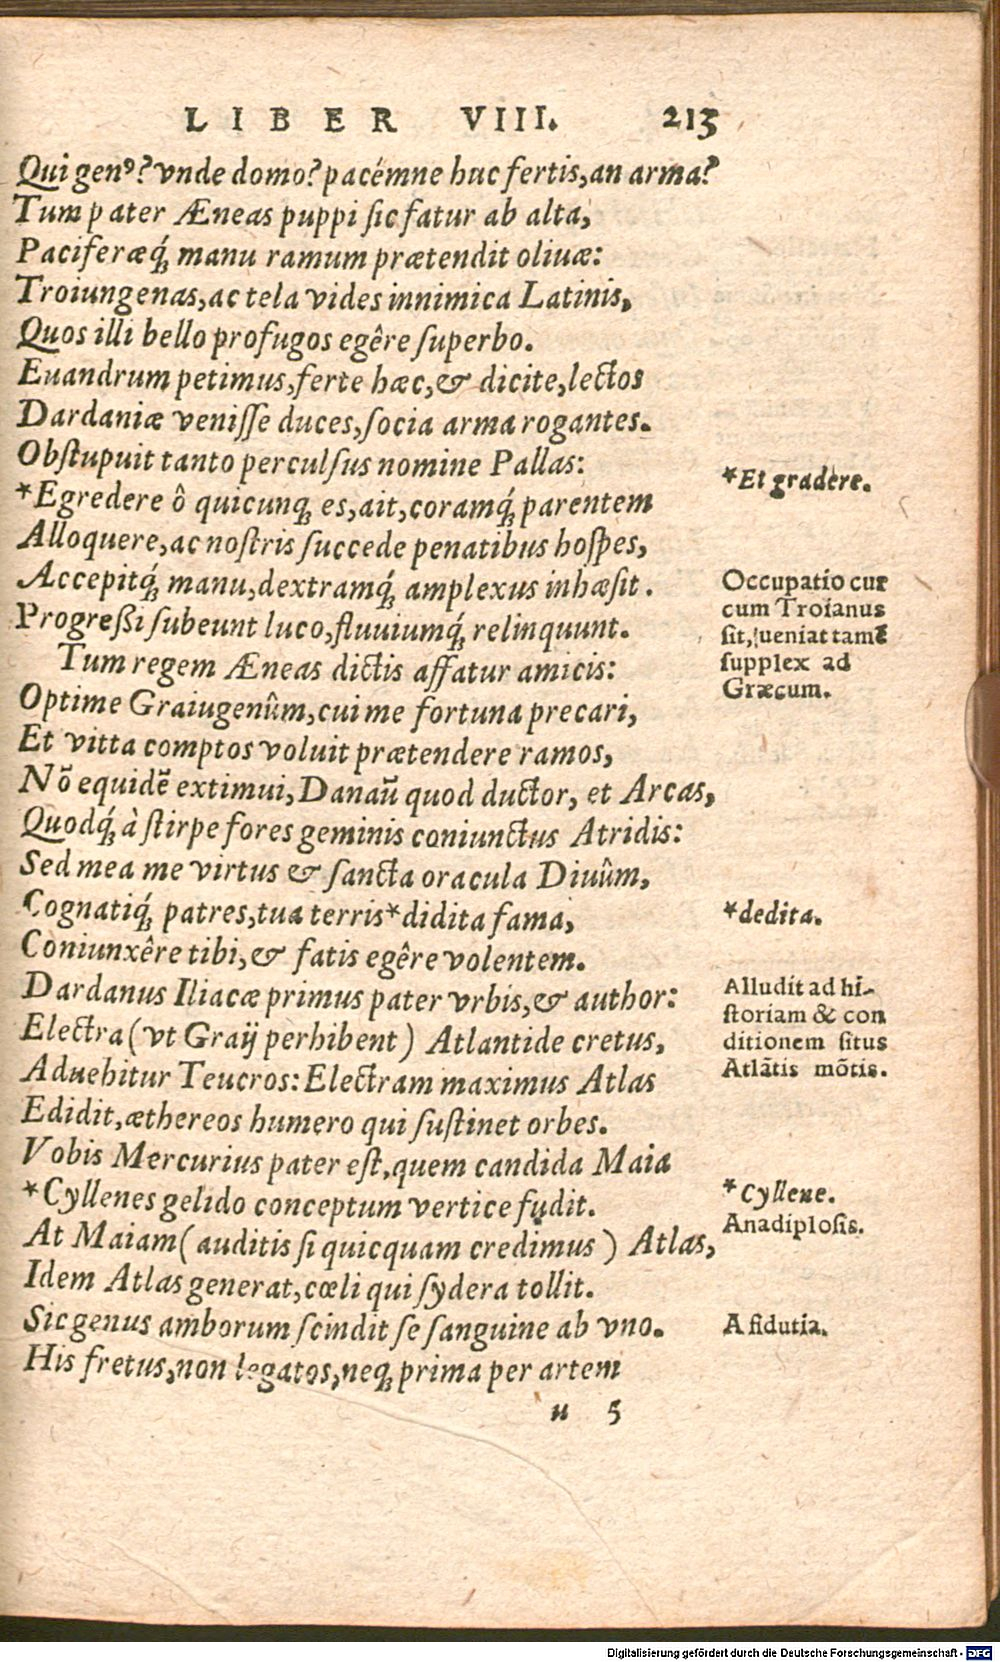 LIBER VIII. 213
Qui genꝰ? vnde domo? pacémne huc fertis, an arma?
Tum pater Æneas puppi ſic fatur ab alta,
Paciferæq́; manu ramum prætendit oliuæ:
Troiungenas, ac tela vides innimica Latinis,
Quos illi bello profugos egêre ſuperbo.
Euandrum petimus, ferte hæc, & dicite, lectos
Dardaniæ veniſſe duces, ſocia arma rogantes.
Obſtupuit tanto perculſus nomine Pallas:
*Egredere ô quicunq; es, ait, coramq́; parentem
*Et gradere.
Alloquere, ac noſtris ſuccede penatibus hoſpes,
Accepitq́; manu, dextramq́; amplexus inhæſit.
Progreßi ſubeunt luco, fluuiumq́; relinquunt.
Occupatio cur
cum Troianus
ſit, ueniat tamē
ſupplex ad
Græcum.
Tum regem Æneas dictis affatur amicis:
Optime Graiugenûm, cui me fortuna precari,
Et vitta comptos voluit prætendere ramos,
Nō equidē extimui, Danaū quod ductor, et Arcas,
Quodq́; à ſtirpe fores geminis coniunctus Atridis:
Sed mea me virtus & ſancta oracula Diuûm,
Cognatiq́; patres, tua terris *didita fama,
*dedita.
Coniunxêre tibi, & fatis egêre volentem.
Dardanus Iliacæ primus pater vrbis, & author:
Electra (vt Graij perhibent) Atlantide cretus,
Aduehitur Teucros: Electram maximus Atlas
Alludit ad hi-
ſtoriam & con
ditionem ſitus
Atlātis mōtis.
Edidit, æthereos humero qui ſuſtinet orbes.
Vobis Mercurius pater eſt, quem candida Maia
*Cyllenes gelido conceptum vertice fudit.
*Cyllene.
Anadiploſis.
At Maiam (auditis ſi quicquam credimus) Atlas,
Idem Atlas generat, cœli qui ſydera tollit.
Sic genus amborum ſcindit ſe ſanguine ab vno.
A fidutia.
His fretus, non legatos, neq; prima per artem
u 5
Digitalisierung gefördert durch die Deutsche Forschungsgemeinschaft - DFG